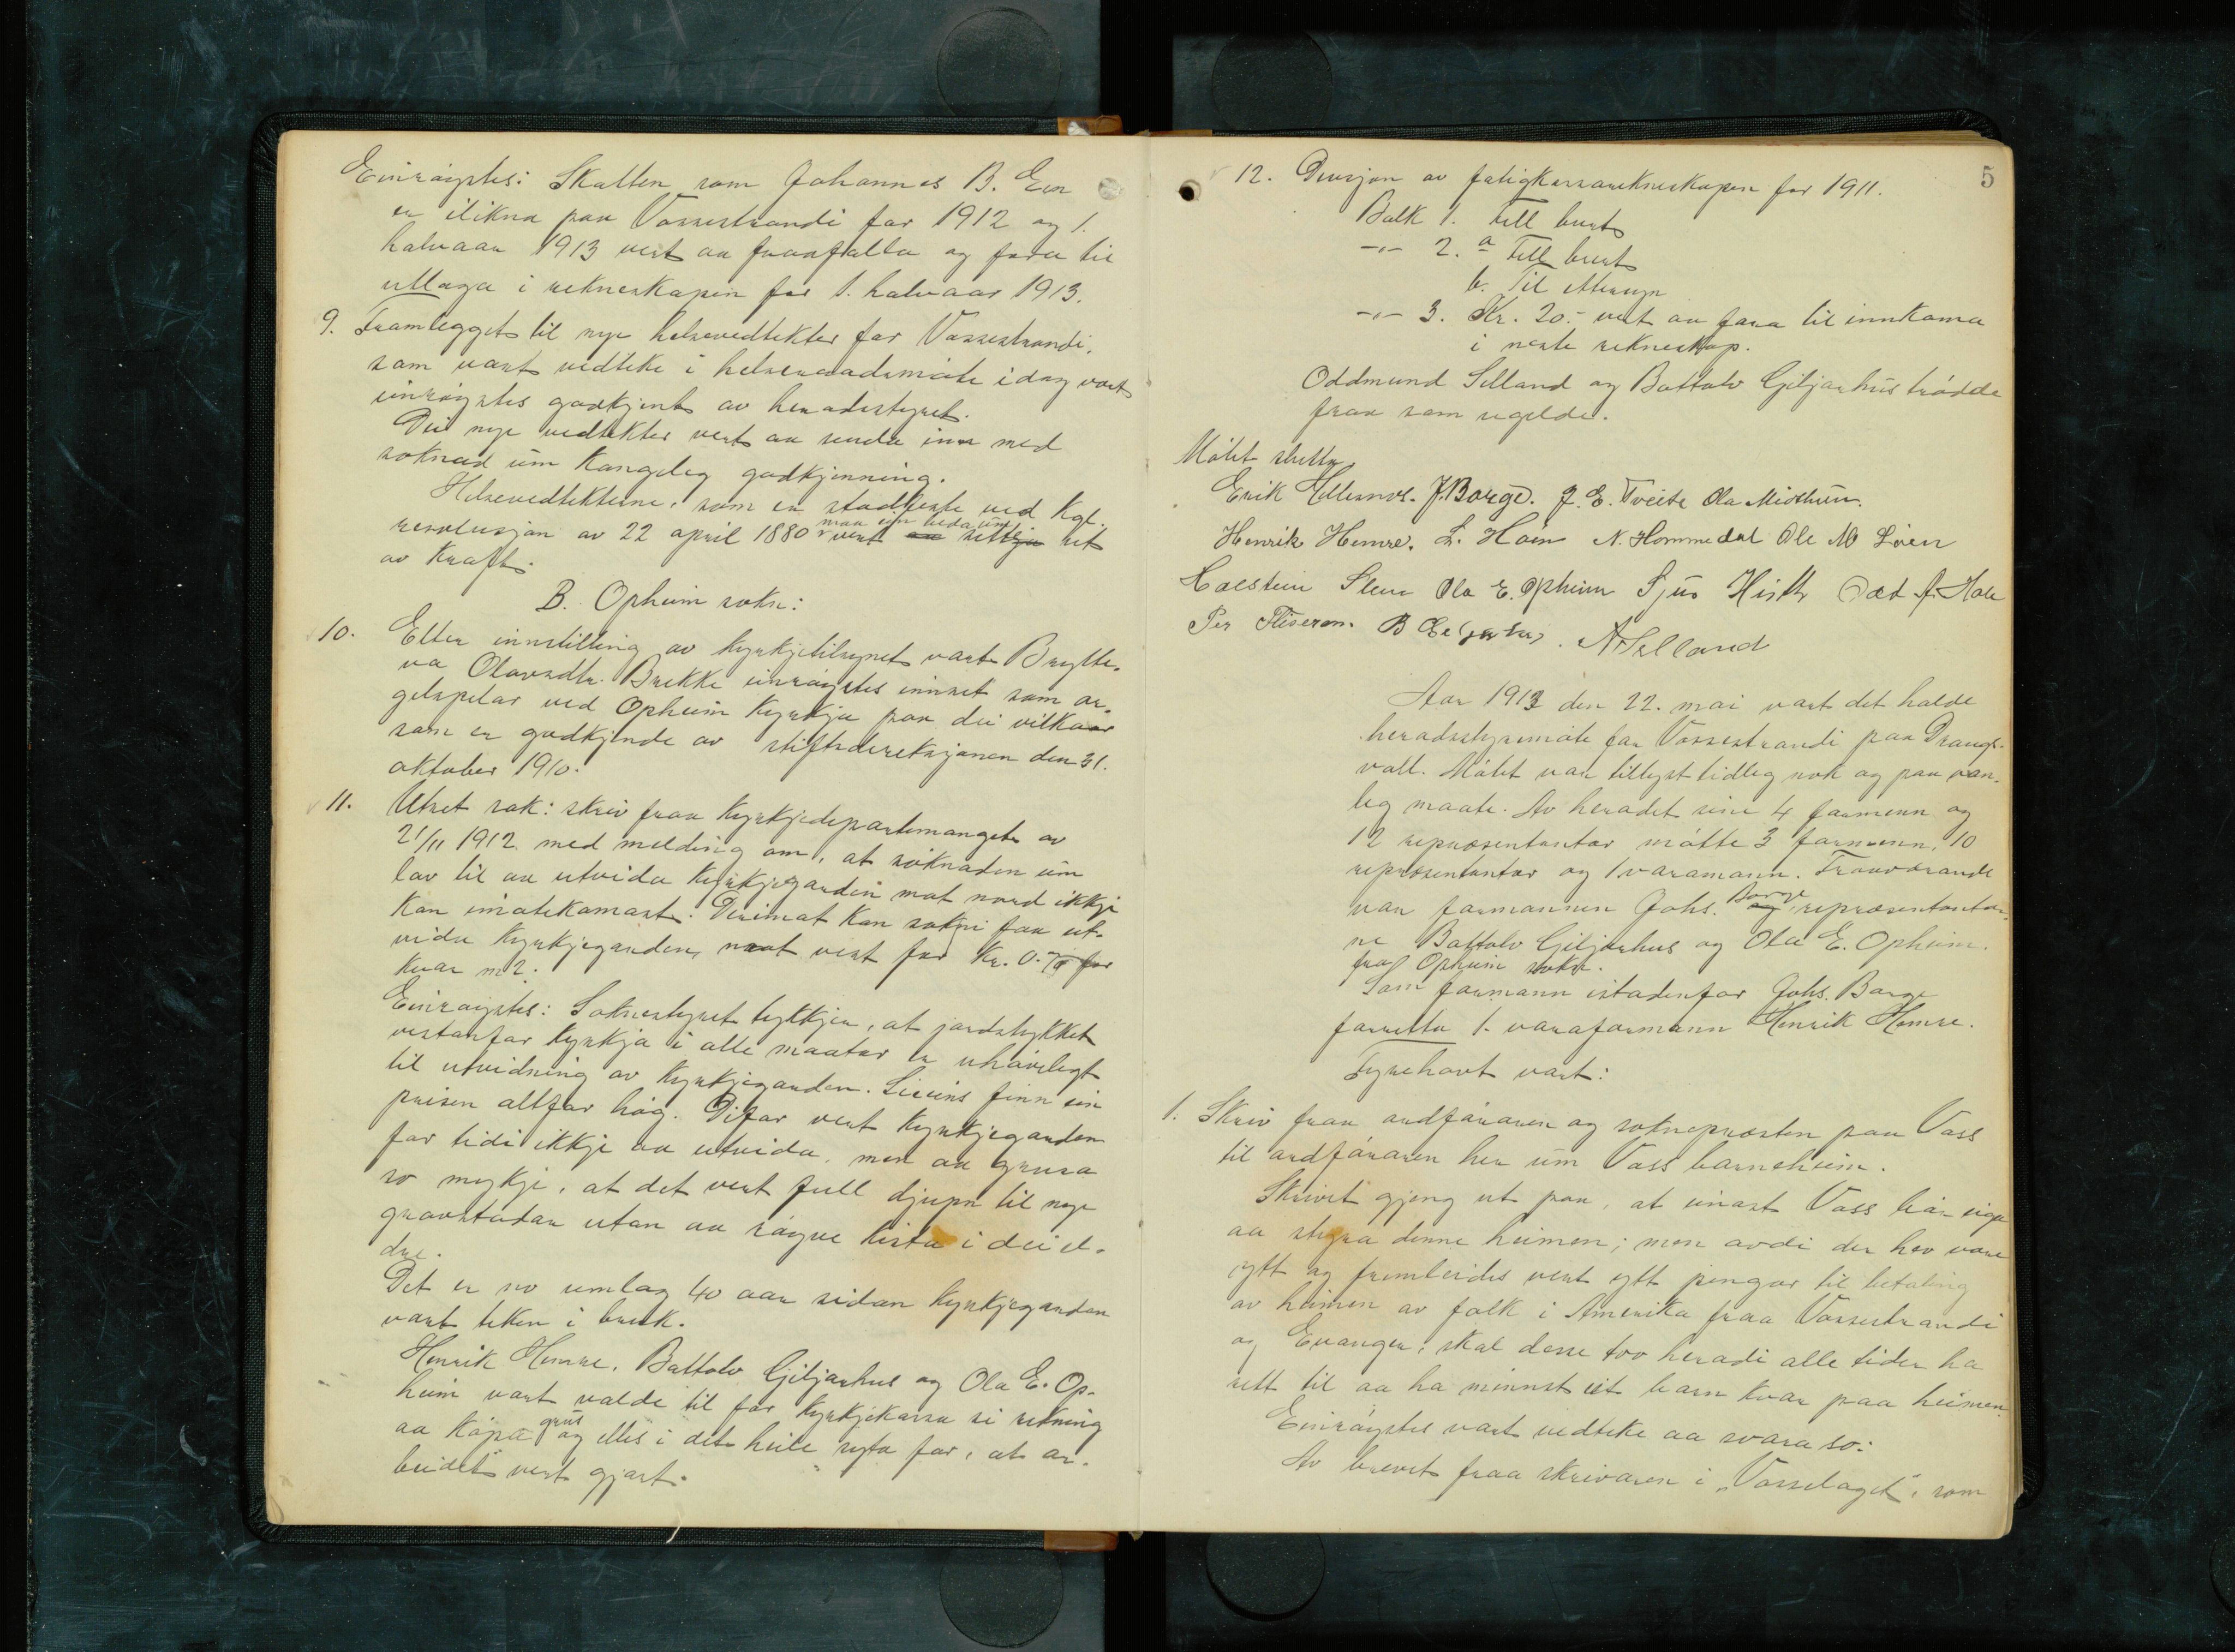 Einrøystes: Skatten som Johannes B. Een
er ilikna paa Vossestrandi for 1912 og 1.
halvaar 1913 vert aa fraafalla og føra til
utlaga i rekneskapen for 1. halvaar 1913.
9. Framlegget til nye helsevedtekter for Vossestrandi,
som vart vedteke i helseraadsmøte idag vart
einrøystes godkjent av heradstyret.
Dei nye vedtekter vert aa senda inn med
søknad um kongeleg godkjenning.
Helsevedtektene, som er stadfeste ved Kgl.
resolusjon av 22 april 1880 maa ein beda um vert aa settja set
av kraft.
B. Opheim sokn:
10. Etter innstilling av kyrkjetilsynet vart Brytte-
va Olavsdtr. Brekke einrøystes innset som or-
gelspelar ved Opheim kyrkje paa dei vilkaar
som er godkjende av stiftsdireksjonen den 31.
oktober 1910.
11. Utset sak: skriv fraa kyrkjedepartemanget av
21/11 1912 med melding om, at søknaden um
lov til aa utvida kyrkjegarden mot nord ikkje
kan imøtekomast. Derimot kan sokni faa ut-
vida kyrkjegarden mot vest for kr. 0.70 for
kvar m2.
Einrøystes: Soknestyret tykkjer, at jordstykket
vestanfor kyrkja i alle maatar er uhøvelegt
til utvidning av kyrkjegarden. Likeins finn ein
prisen altfor høg. Difor vert kyrkjegarden
for tidi ikkje aa utvida, men aa grusa
so mykje, at det vert full djupn til nye
gravstadar utan aa røyve kista i dei el-
dre.
Det er no umlag 40 aar sidan kyrkjegarden
vart teken i bruk.
Henrik Hemre, Battolv Giljarhus og Ola E. Op-
heim vart valde til for kyrkjekassa si rekning
aa kjøpa grus og elles i det heile syta for, at ar-
beidet vert gjort.
5
12. Desisjon av fatigkassarekneskapen for 1911.
Bolk 1. Fell burt
-"- 2. a Fell burt
b. Til ettersyn
-"- 3. Kr. 20.- vert aa føra til innkoma
i neste rekneskap.
Oddmund Selland og Battolv Giljarhus trødde
fraa som ugilde.
Møtet slutta
Erik Hellesnes. J. Borge. J. E. Tveite Ola Midthun.
Henrik Hemre. L. Høin N. Hommedal Ole M Løen
Holstein Sleen Ola E. Opheim Sjur Hirth Odd J. Hole
Per Fliseram. B Giljarhus. A Selland
Aar 1913 den 22. mai vart det halde
heradstyremøte for Vossestrandi paa Draugs-
voll. Møtet var tillyst tidleg nok og paa van-
leg maate. Av heradet sine 4 formenn og
12 representantar møtte 3 formenn, 10
representantar og 1 varamann. Fraaverande
var formannen Johs. Borge og representanta-
ne Battolv Giljarhus og Ola E. Opheim.
fraa Opheim sokn.
Som formann istadenfor Johs. Borge
forretta 1. varaformann Henrik Hemre.
Fyrehavt vart:
1. Skriv fraa ordføraren og soknepresten paa Voss
til ordføraren her um Voss barneheim.
Skrivet gjeng ut paa, at einast Voss bør eiga
aa styra denne heimen; men avdi der hev vore
ytt og frenleides vert ytt pengar til betaling
av heimen av folk i Amerika fraa Vossestrandi
og Evanger, skal desse tvo heradi alle tider ha
rett til aa ha minnst eit barn kvar paa heimen.
Einrøystes vart vedteke aa svara so:
Av brevet fraa skrivaren i „Vosselaget", som